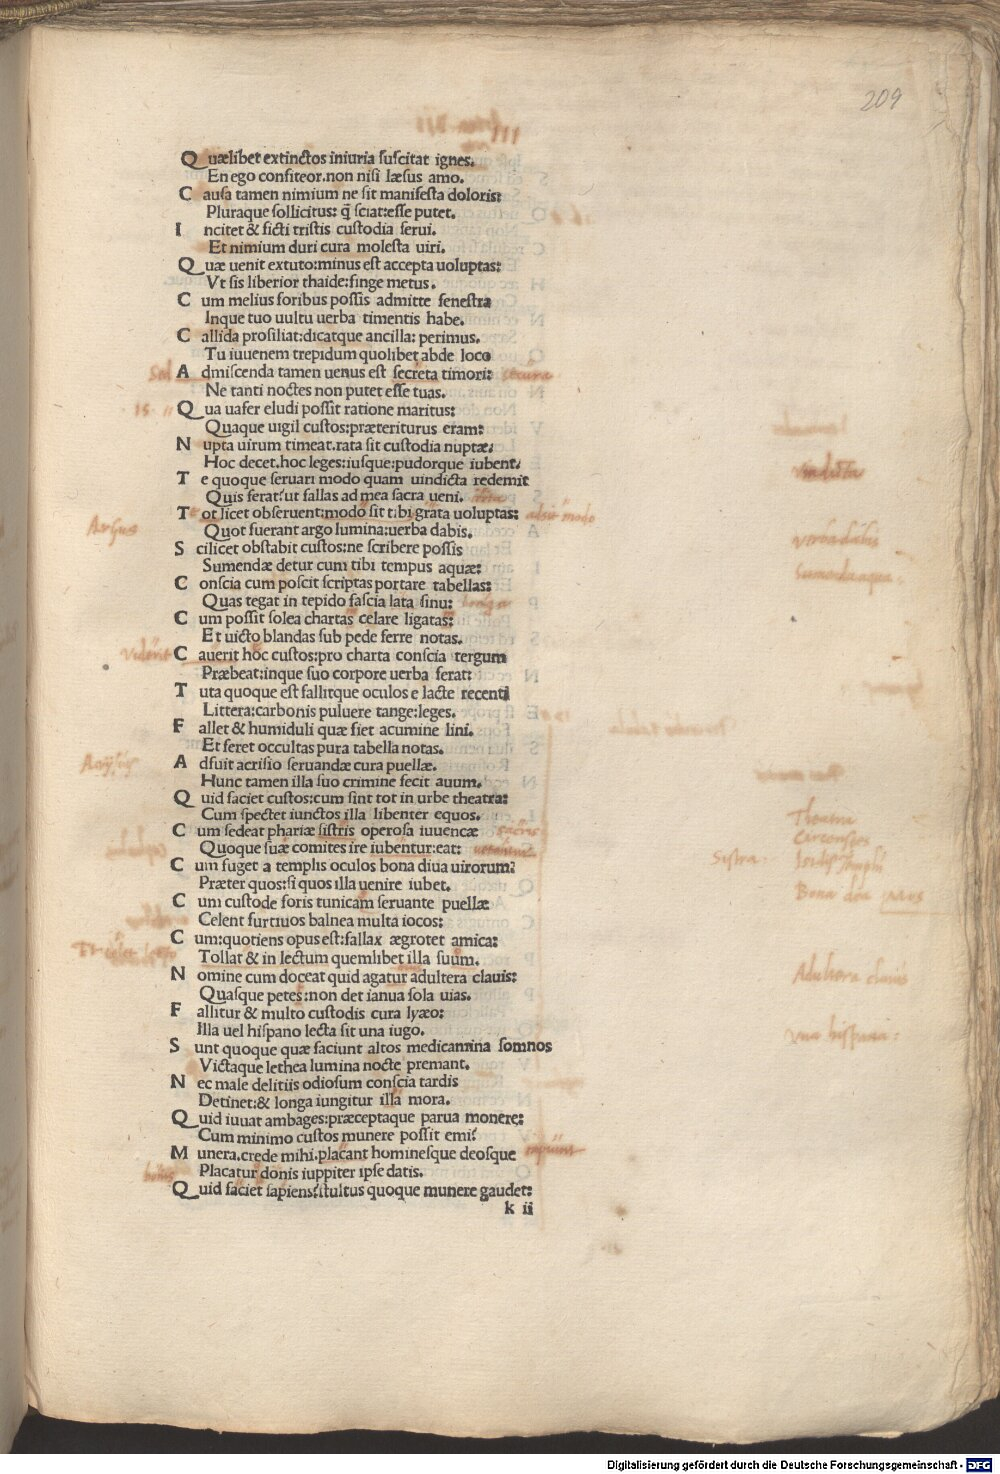 209
Quælibet extinctos iniuria suscitat ignes.
En ego confiteor.non nisi læsus amo.
Causa tamen nimium ne sit manifesta doloris:
Pluraque sollicitus: q̃ sciat:esse putet.
Incitet & ficti tristis custodia serui.
Et nimium duri cura molesta uiri.
Quæ uenit extuto:minus est accepta uoluptas:
Vt sis liberior thaide:finge metus.
Cum melius foribus possis admitte fenestra
Inque tuo uultu uerba timentis habe.
Callida prosiliat:dicatque ancilla: perimus.
Tu iuuenem trepidum quolibet abde loco
Sed Admiscenda tamen uenus est secreta timori: secura
Ne tanti noctes non putet esse tuas.
15 Qua uafer eludi possit ratione maritus:
Quaque uigil custos:præteriturus eram:
Nupta uirum timeat.rata sit custodia nuptæ:
Hoc decet.hoc leges:iusque:pudorque iubent:
vindicta
Te quoque seruari modo quam uindicta redemit
Quis ferat:ut fallas ad mea sacra ueni.
Tot licet obseruent:modo sit tibi grata uoluptas: adsit modo
Argus
Quot fuerant argo lumina:uerba dabis.
verba dabis
Scilicet obstabit custos:ne scribere possis
Sumendæ detur cum tibi tempus aquæ:
Sumendæ aquæ
Conscia cum poscit scriptas portare tabellas:
Quas tegat in tepido fascia lata sinu:
Cum possit solea chartas celare ligatas:
Et uicto blandas sub pede ferre notas.
Viderit Cauerit hoc custos:pro charta conscia tergum
Præbeat:inque suo corpore uerba ferat:
Tuta quoque est fallitque oculos e lacte recenti
Littera:carbonis puluere tange:leges.
Fallet & humiduli quæ fiet acumine lini.
Et feret occultas pura tabella notas.
Adfuit acrisio seruandæ cura puellæ.
Hunc tamen illa suo crimine fecit auum.
Quid faciet custos:cum sint tot in urbe theatra:
Theatra
Cum spectet iunctos illa libenter equos.
Circenses
Cum sedeat phariæ sistris operosa iuuencæ sacris
Sistra.
Quoque suæ comites ire iubentur:eat:
Cum fuget a templis oculos bona diua uirorum:
Bona dea
Præter quos:si quos illa uenire iubet.
Cum custode foris tunicam seruante puellæ
Celent furtiuos balnea multa iocos:
Cum:quotiens opus est:fallax ægrotet amica:
Tollat & in lectum quemlibet illa suum.
Nomine cum doceat quid agatur adultera clauis:
Adultera clauis
Quasque petes:non det ianua sola uias.
Fallitur & multo custodis cura lyæo:
Illa uel hispano lecta sit una iugo.
vua hispana:
Sunt quoque quæ faciunt altos medicamina somnos
Victaque lethea lumina nocte premant.
Nec male delitiis odiosum conscia tardis
Detinet:& longa iungitur illa mora.
Quid iuuat ambages:præceptaque parua monere:
Cum minimo custos munere possit emi:
Munera.crede mihi.placant hominesque deosque
Placatur donis iuppiter ipse datis.
Quid faciet sapiens:stultus quoque munere gaudet:
k ii
Digitalisierung gefördert durch die Deutsche Forschungsgemeinschaft - DFG